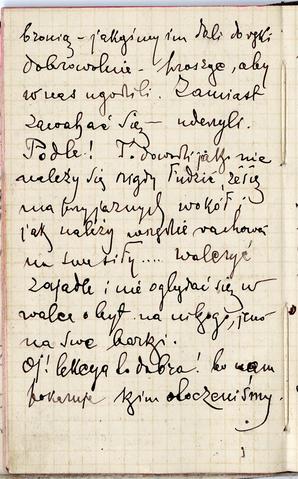 bronią – jakgimy im dali do ręki
dobrowolnie – prosząc, aby
w nas ugodzili. Zamiast
zawahać się – uderzyli.
Podłe! I dowód jak nie
należy się nigdy łudzić, że się
ma przyjaznych wokół i
jak należy wszystkie rachować
na swe siły.... walczyć
zajadle i nie oglądać się w
walce o byt na nikogo, jeno
na swe barki.
Oj! lekcya to dobra! bo nam
pokazuje kim otoczeniśmy.